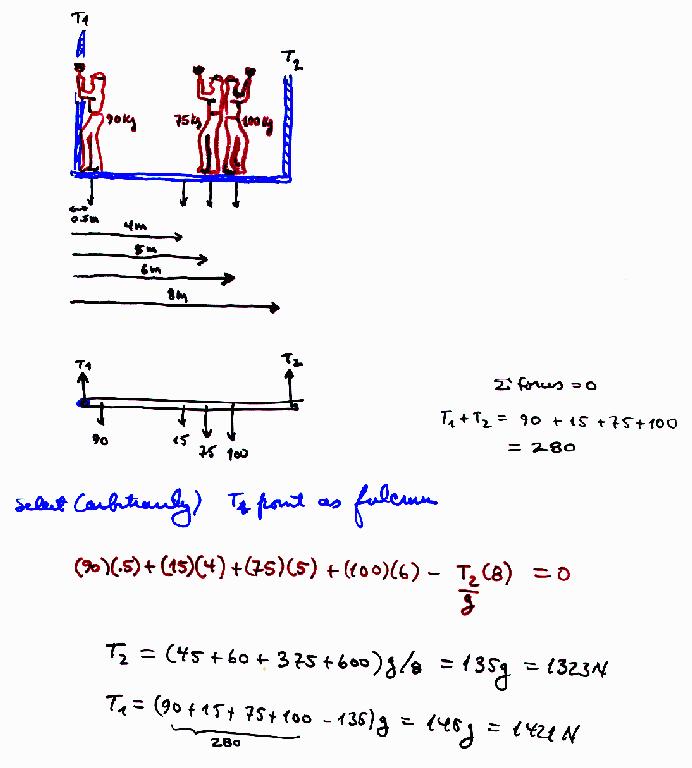 T1
T2
90kg 75kg 100kg
0.5m
4m
5m
6m
8m
T1 T2
90 15 75 100
Σ forces = 0
T1 + T2 = 90 + 15 + 75 + 100
= 280
Select (arbitrarily) T1 point as fulcrum
(90)(.5) + (15)(4) + (75)(5) + (100)(6) - T2/g (8) = 0
T2 = (45 + 60 + 375 + 600)g/8 = 135g = 1323N
T1 = (90 + 15 + 75 + 100 - 135)g = 145g = 1421N
280